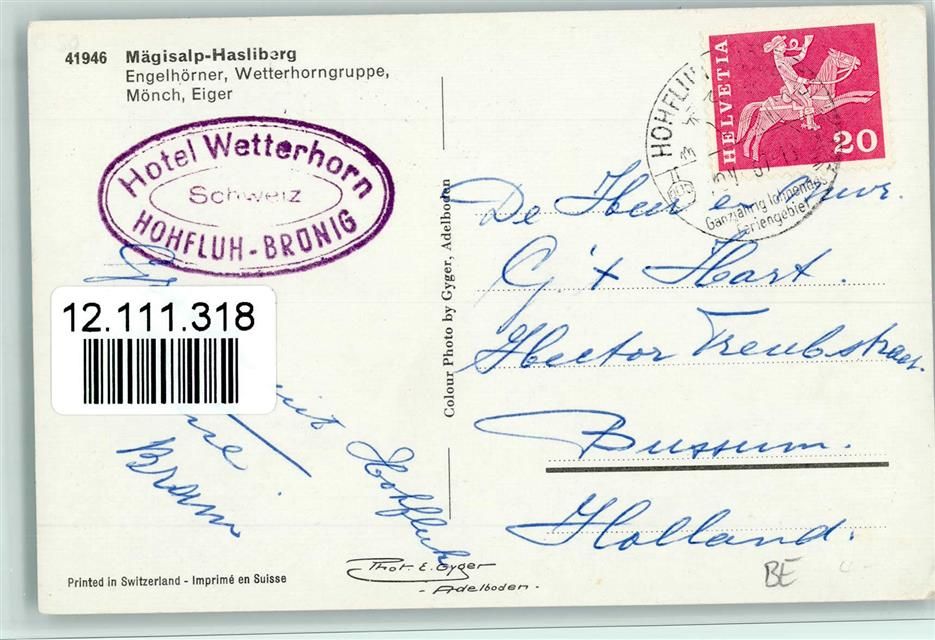 41946 Mägisalp-Hasliberg
Engelhörner, Wetterhorngruppe,
Mönch, Eiger
Hotel Wetterhorn
Schweiz
HOHFLUH-BRÜNIG
12.111.318
uit Hohfluh
Bram
Printed in Switzerland - Imprimé en Suisse
Phot. E. Gyger
- Adelboden -
Colour Photo by Gyger, Adelboden
HELVETIA
20
HOHFLUH
Ganzjährig lohnendes
Feriengebiet
De Heer en Mevr.
G. 't Hart.
Hector Treubstraat.
Bussum.
Holland.
BE